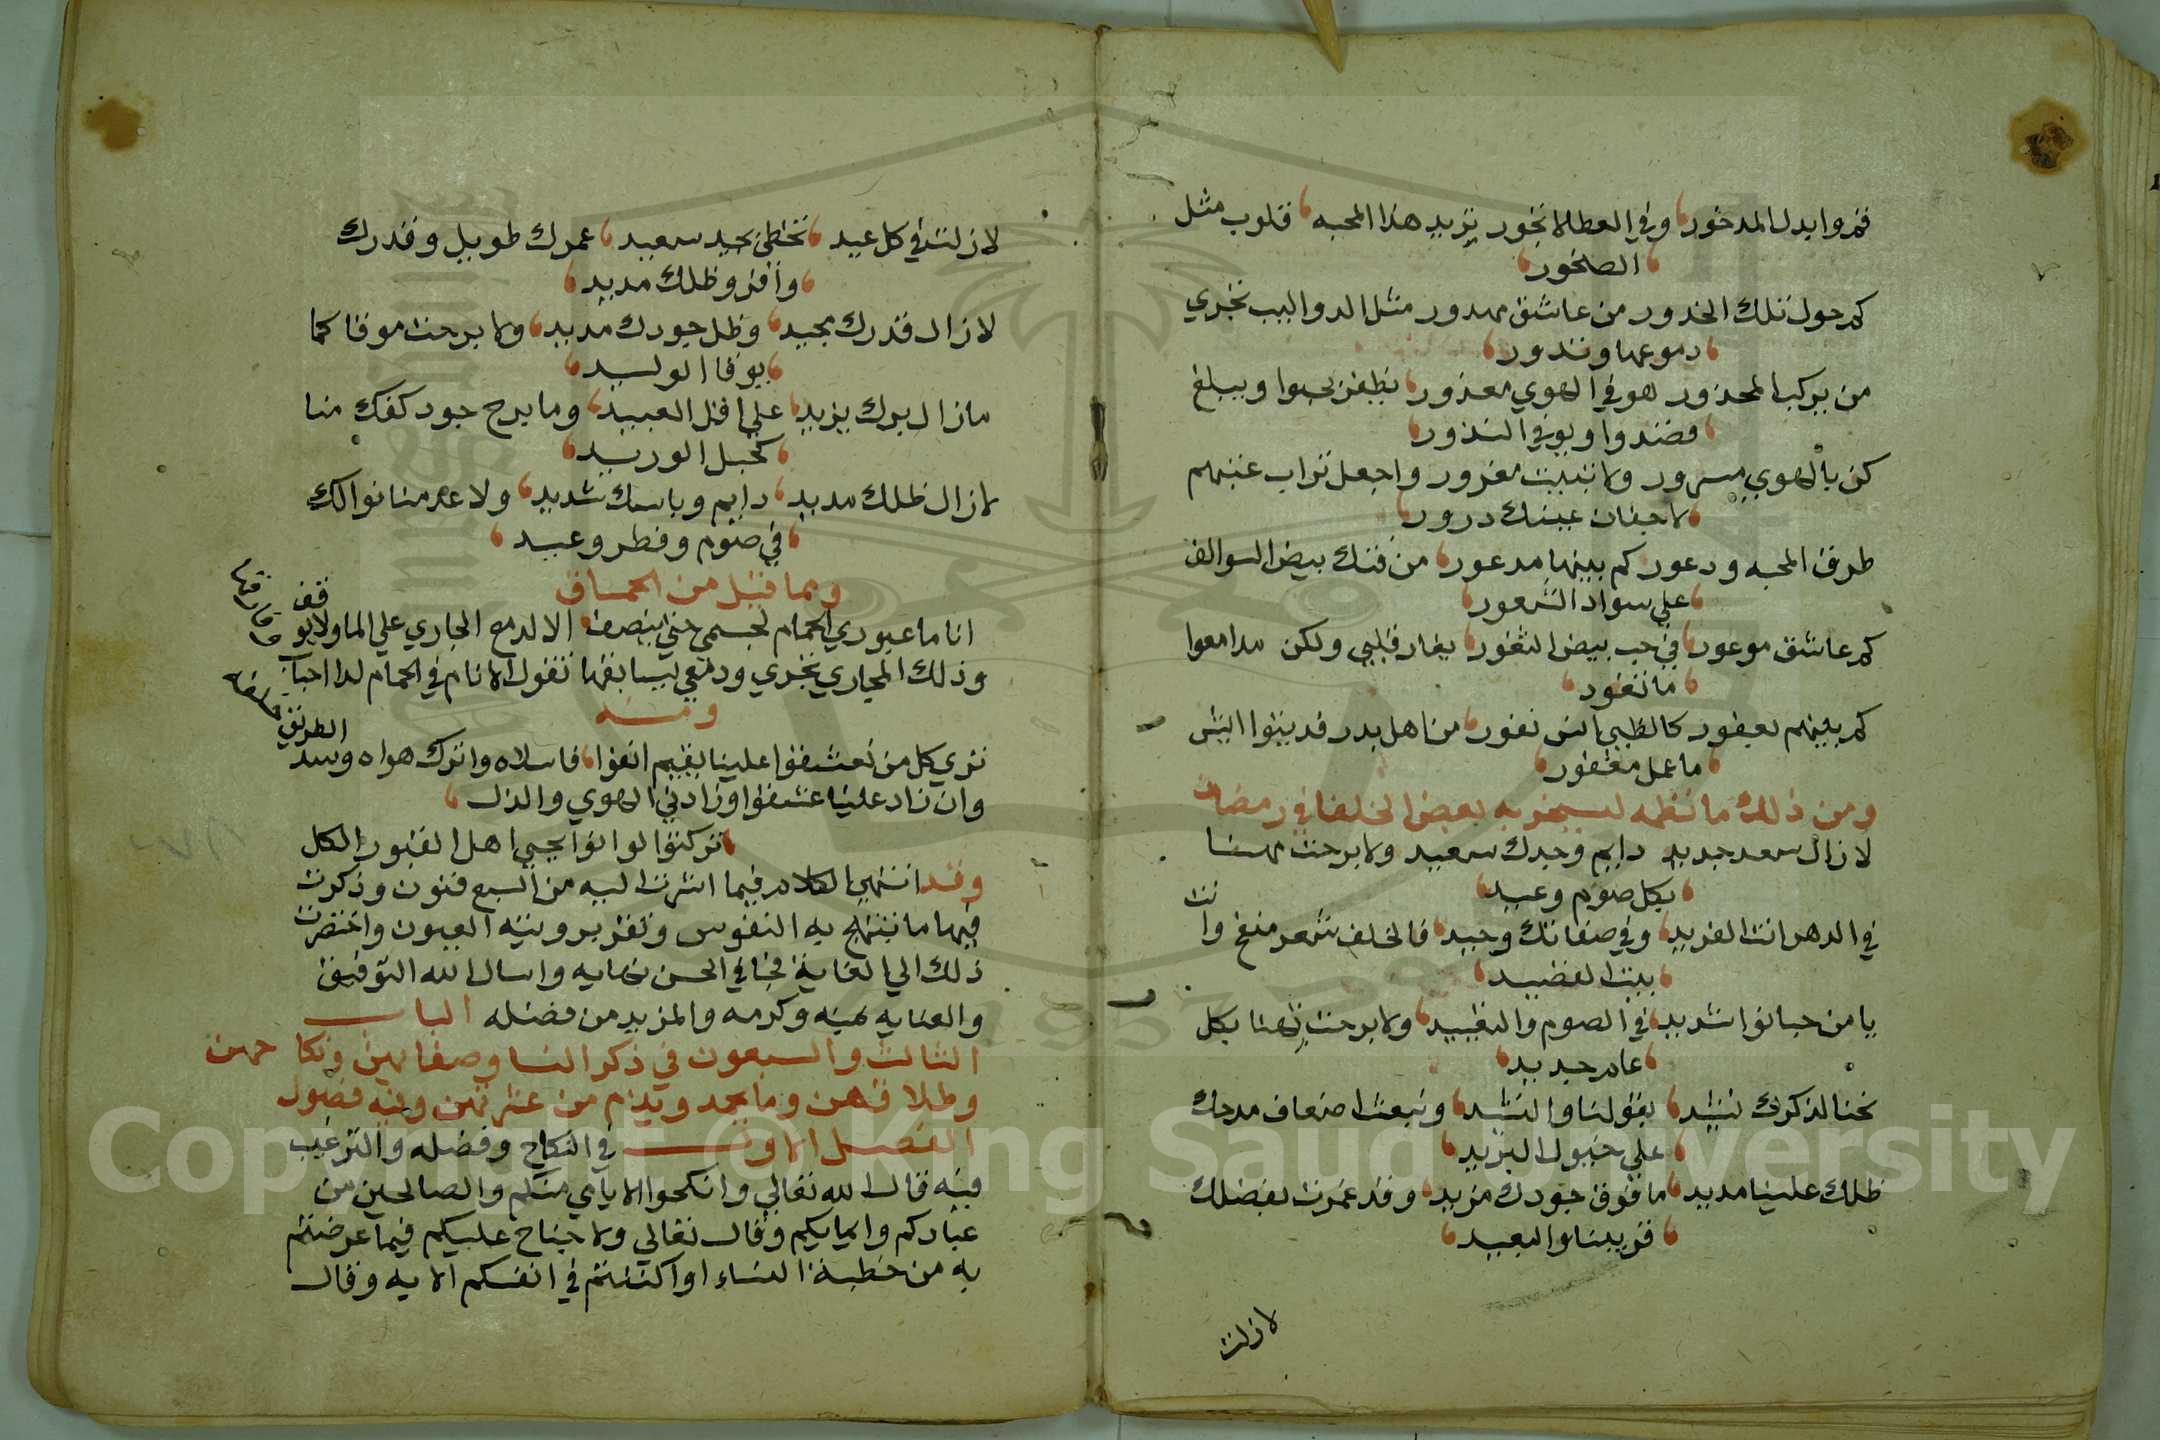 قم وابدل المدخور وفي العطا لا تجور تزيد هذا المحبه قلوب مثل
الصخور
كم حول تلك الخدور من عاشق مهدور مثل الدواليب تجري
دموعها وتدور
من يركب المحذور هو في الهوي معذور يظفر ويبلغ
قصدوا ويوفي النذور
كن بالهوي مسرور ولا تبيت مغرور واجعل تراب عتبهم
لاجفان عينك درور
طرق المحبه ودعور كم بينها مدعور من فتك بيض السوالف
علي سواد الشعور
كم عاشق موعور في حب بيض الثغور يغار قلبي ولكن مدامعوا
ما تغور
كم بينهم يعفور كالظبي انس نفور من اهل بدر قد بيتوا ايش
ما عمل مغفور
ومن ذلك ما نظمه ليسحر به بعض الخلفا في رمضان
لا زال سعد جديد دايم وجدك سعيد ولا برحت مهنا
بكل صوم وعيد
في الدهر انت الفريد وفي صفاتك وحيد فالخلف شعر منقح وانت
بيت القصيد
يا من جبابوا شديد في الصوم والتقييد ولا برحت تهنا بكل
عام جديد
نحنا لذكرك نشيد بقولنا والنشيد ونبعث اضعاف مدحك
علي خيول البريد
ظلك علينا مديد ما فوق جودك مزيد وقد غمرت بفضلك
قريبنا والبعيد
لا زلت
لا زلت في كل عيد تحظي بجد سعيد عمرك طويل وقدرك
وافر وظلك مديد
لا زال قدرك مجيد وظل جودك مديد ولا برحت موقا كما
يوقا الوليد
ما زال برك يزيد علي اقل العبيد وما برح جود كفك منا
كحبل الوريد
لا زال ظلك مديد دايم وباسك شديد ولا عدمنا نوالك
في صوم وفطر وعيد
ومما قيل من الحماق
انا ما عبوري الحمام لجسمي حتي ينصف الا لدمع الجاري علي الما ولا يوقف
وذلك المجاري تجري ودمعي يسابقها تقول الانام في الحمام لدا احبا
ومنه
تري كل من نعشقوا علينا يقيم انفوا فاسلاه واترك هواه وسد الطريق
وان زاد علينا عشقوا وزاد بي الهوي والذل
تركتوا لوانوا يحيي اهل القبور الكل
وقد انتهي الكلام فيما اشرت اليه من السبع فنون وذكرت
فيها ما تبتهج به النفوس وتقر برويته العيون واختصرت
ذلك الي الغاية فجا في الحسن نهايه واسال الله التوفيق
والعنايه بمنه وكرمه والمزيد من فضله الباب
الثالث والسبعون في ذكر النسا وصفاتهن ونكاحهن
وطلاقهن وما يحمد ويذم من عشرتهن وفيه فصول
الفصل الاول في النكاح وفضله والترغيب
فيه قال الله تعالي وانكحوا الايامي منكم والصالحين من
عبادكم وامايكم وقال تعالي ولا جناح عليكم فيما عرضتم
به من خطبة النساء او اكننتم في انفسكم الايه وقال
Copyright © King Saud University